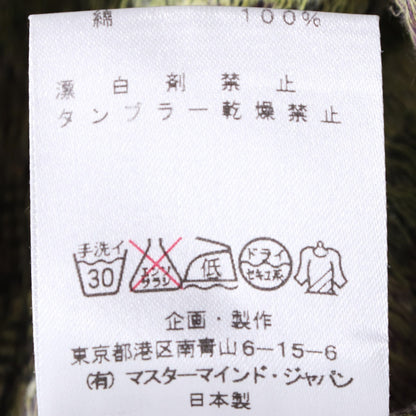 綿 100%
漂白剤禁止
タンブラー乾燥禁止
手洗イ 30 エンソサラシ 低 ドライ セキユ系
企画・製作
東京都港区南青山6-15-6
(有) マスターマインド・ジャパン
日本製